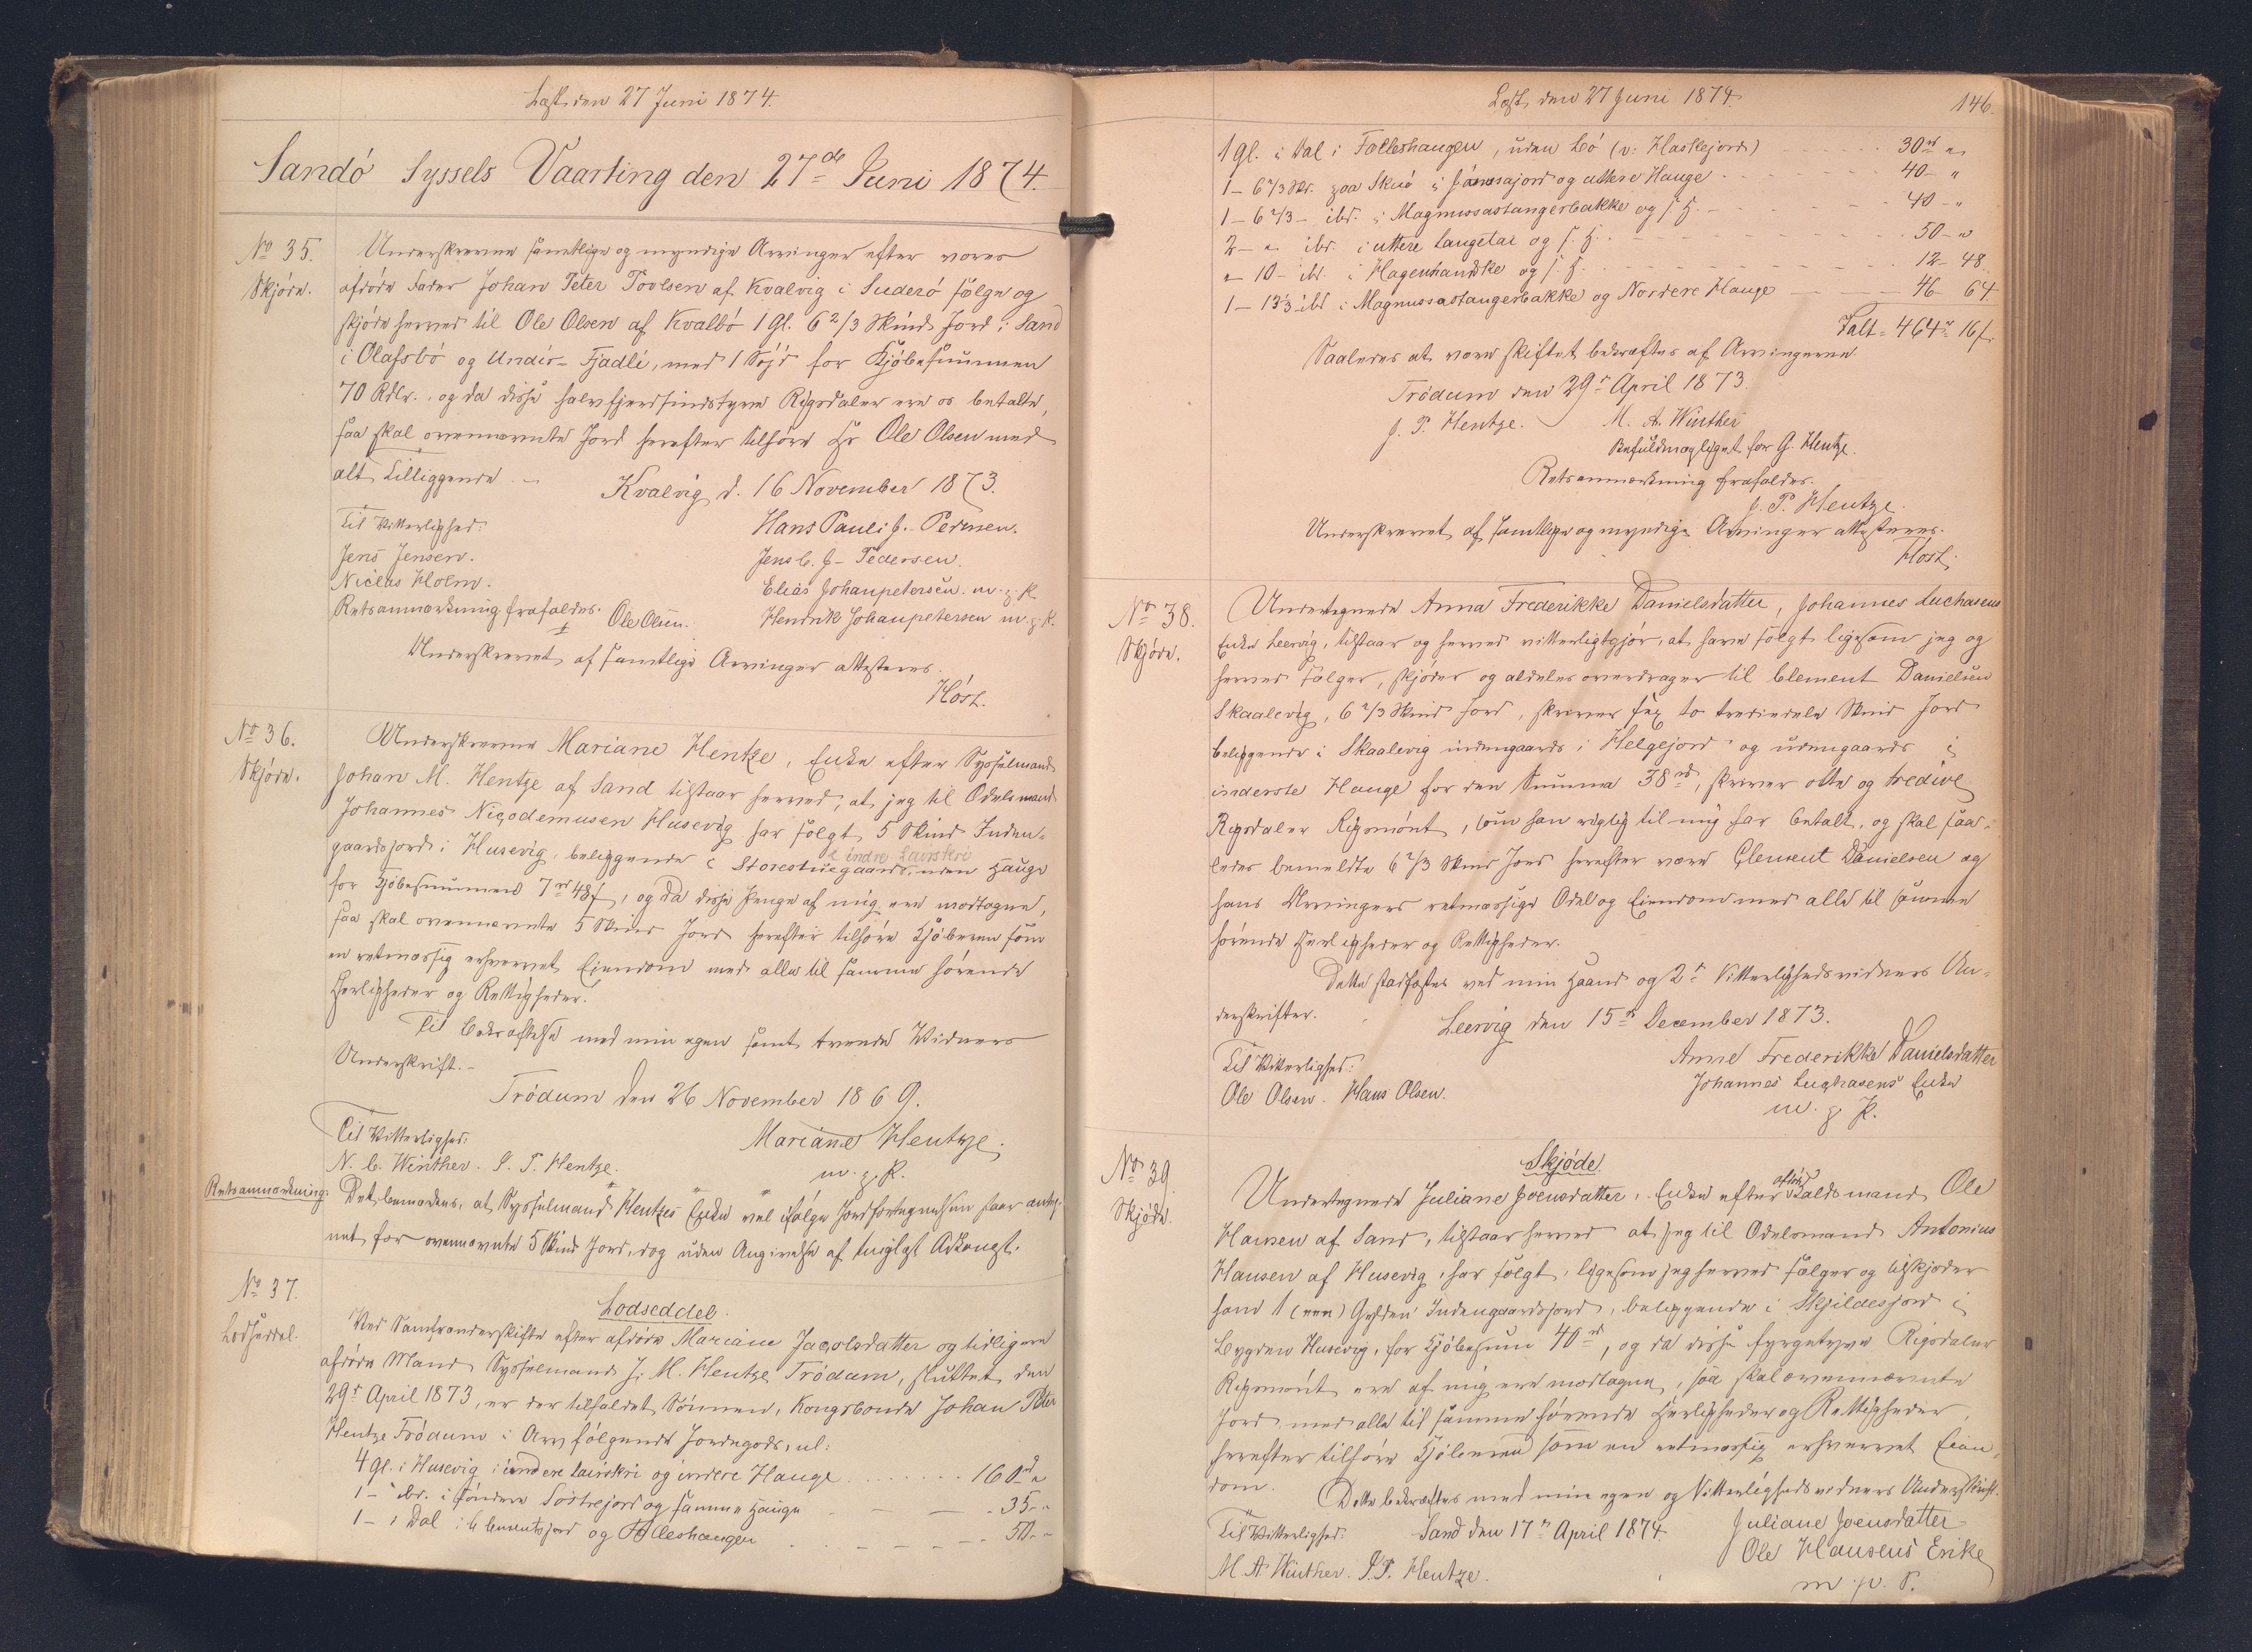 Læst den 27 Juni 1874.
Sandó Syssels Vaarting den 27de Juni 1874.
No 35.
Skjöde.
Underskrevne samtlige og myndige Arvinger efter vores
afdöde Fader Johan Peter Poulsen af Kvalvig i Suderö sælge og
skjöde herved til Ole Olsen af Kvalbö 1 Gl. 6 2/3 Skind Jord i Sand
i Olafsbö og Undir-Fjadli, med 1 for Kjöbesummen
70 Rdlr. og da disse halvfjerdsindstyve Rigsdaler ere os betalte,
saa skal ovennævnte Jord herefter tilhöre Hr Ole Olsen med
alt Tilliggende.
Kvalvig d. 16 November 1873.
Til Vitterlighed:
Hans Pauli J. Pedersen.
Jens Jensen.
Jens C. J. Pedersen.
Niclas Holm.
Elias Johanpetersen m. p. P.
Retsanmærkning frafaldes. Ole Olsen.
Hendrik Johanpetersen m. p. P.
Underskrevet af samtlige Arvinger attesteres.
Höst.
No 36.
Skjöde.
Underskrevne Mariane Hentze, Enke efter Sysselmand
Johan M. Hentze af Sand tilstaar herved, at jeg til Odelsmand
Johannes Nicodemusen Husevig har solgt 5 Skind Inden-
gaardsjord i Husevig, beliggende i Storestuegaard, uden Hauge
i indre Lairskri
for Kjöbesummen 7 rd 48 s, og da disse Penge af mig ere modtagne,
saa skal ovennævnte 5 Skind Jord herefter tilhöre Kjöberen som
en retmæssig erhvervet Eiendom med alle til samme hörende
Herligheder og Rettigheder.
Til Bekræftelse med min egen samt tvende Vidners
Underskrift.
Trödum den 26 November 1869.
Til Vitterlighed:
Mariane Hentze.
N. C. Winther. J. P. Hentze.
m. p. P.
Retsanmærkning: Det bemærkes, at Sysselmand Hentzes Enke vel ifölge Jordfortegnelsen staar anteg-
net for ovennævnte 5 Skind Jord, dog uden Angivelse af tinglæst Adkomst.
No 37.
Lodseddel.
Lodseddel.
Ved Samfrændeskifte efter afdöde Mariane Jacobsdatter og tidligere
afdöde Mand Sysselmand J. M. Hentze Trödum, sluttet den
29de April 1873, er der tilfaldet Sönnen, Kongsbonde Johan Peter
Hentze Trödum i Arv fölgende Jordegods, nl:
4 gl. i Husevig i indere Lairskri og indere Hauge 160 rd "
1 - ibd. i söndere Söstrejord og samme Hauge 35 - "
1 - i Dal i Clementsjord og Fælleshaugen 50 - "
Læst den 27 Juni 1874.
146.
1 gl. i Dal i Fælleshaugen, uden Bö (v: Haskejord) 30 rd "
1 - 6 2/3 Sk. paa Skuö i Jónsajord og uttere Hauge 40 - "
1 - 6 2/3 - ibd. i Magnussastangerbakke og s. H. 40 - "
2 - " ibd. i uttere Langetai og s. H. 50 - "
" - 10 - ibd. i Hagenhandke og s. H. 12 - 48
1 - 13 1/3 ibd i Magnussastangerbakke og Nordere Hauge 46 - 64
Talt = 464 rd 16 s.
Saaledes at være skiftet bekræftes af Arvingerne
Trödum den 29de April 1873.
J. P. Hentze. M. A. Winther
Befuldmægtiget for G. Hentze.
Retsanmærkning frafaldes.
J. P. Hentze.
Underskrevet af samtlige og myndige Arvinger attesteres.
Höst.
No 38.
Skjöde.
Undertegnede Anna Frederikke Danielsdatter, Johannes Luchasens
Enke Leervig, tilstaar og herved vitterligtgjör, at have solgt ligesom jeg og
herved sælger, skjöder og aldeles overdrager til Clement Danielsen
Skaalevig, 6 2/3 Skind Jord, skriver sex to trediedele Skind Jord
beliggende i Skaalevig indengaards i Helgejord og udengaards i
inderste Hauge for den Summa 38 rd, skriver otte og tredive
Rigsdaler Rigsmönt, som han rigtig til mig har betalt, og skal saa-
ledes bemeldte 6 2/3 Skind Jord herefter være Clement Danielsen og
hans Arvingers retmæssige Odel og Eiendom med alle til samme
hörende Herligheder og Rettigheder.
Dette stadfæstes ved min Haand og 2de Vitterlighedsvidners Un-
derskrifter.
Leervig den 15de December 1873.
Til Vitterlighed:
Anne Frederikke Danielsdatter
Ole Olsen. Hans Olsen.
Johannes Luchasens Enke
m. p. P.
No 39.
Skjöde.
Skjøde.
Undertegnede Juliane Joensdatter, Enke efter afdöde Baldsmand Ole
Hansen af Sand, tilstaar herved at jeg til Odelsmand Antonius
Hansen af Husevig, har solgt, ligesom jeg herved sælger og tilskjöder
ham 1 (een) Gylden Indengaardsjord, beliggende i Skjildesjord i
Bygden Husevig, for Kjöbesum 40 rd, og da disse fyrgetyve Rigsdaler
Rigsmönt ere af mig ere modtagne, saa skal ovennævnte
Jord med alle til samme hörende Herligheder og Rettigheder,
herefter tilhöre Kjöberen som en retmæssig erhvervet Eien-
dom.
Dette bekræftes med min egen og Vitterlighedsvidners Underskrift.
Til Vitterlighed:
Sand den 17de April 1874.
Juliane Joensdatter
M. A. Winther. J. P. Hentze.
Ole Hansens Enke
m. p. P.